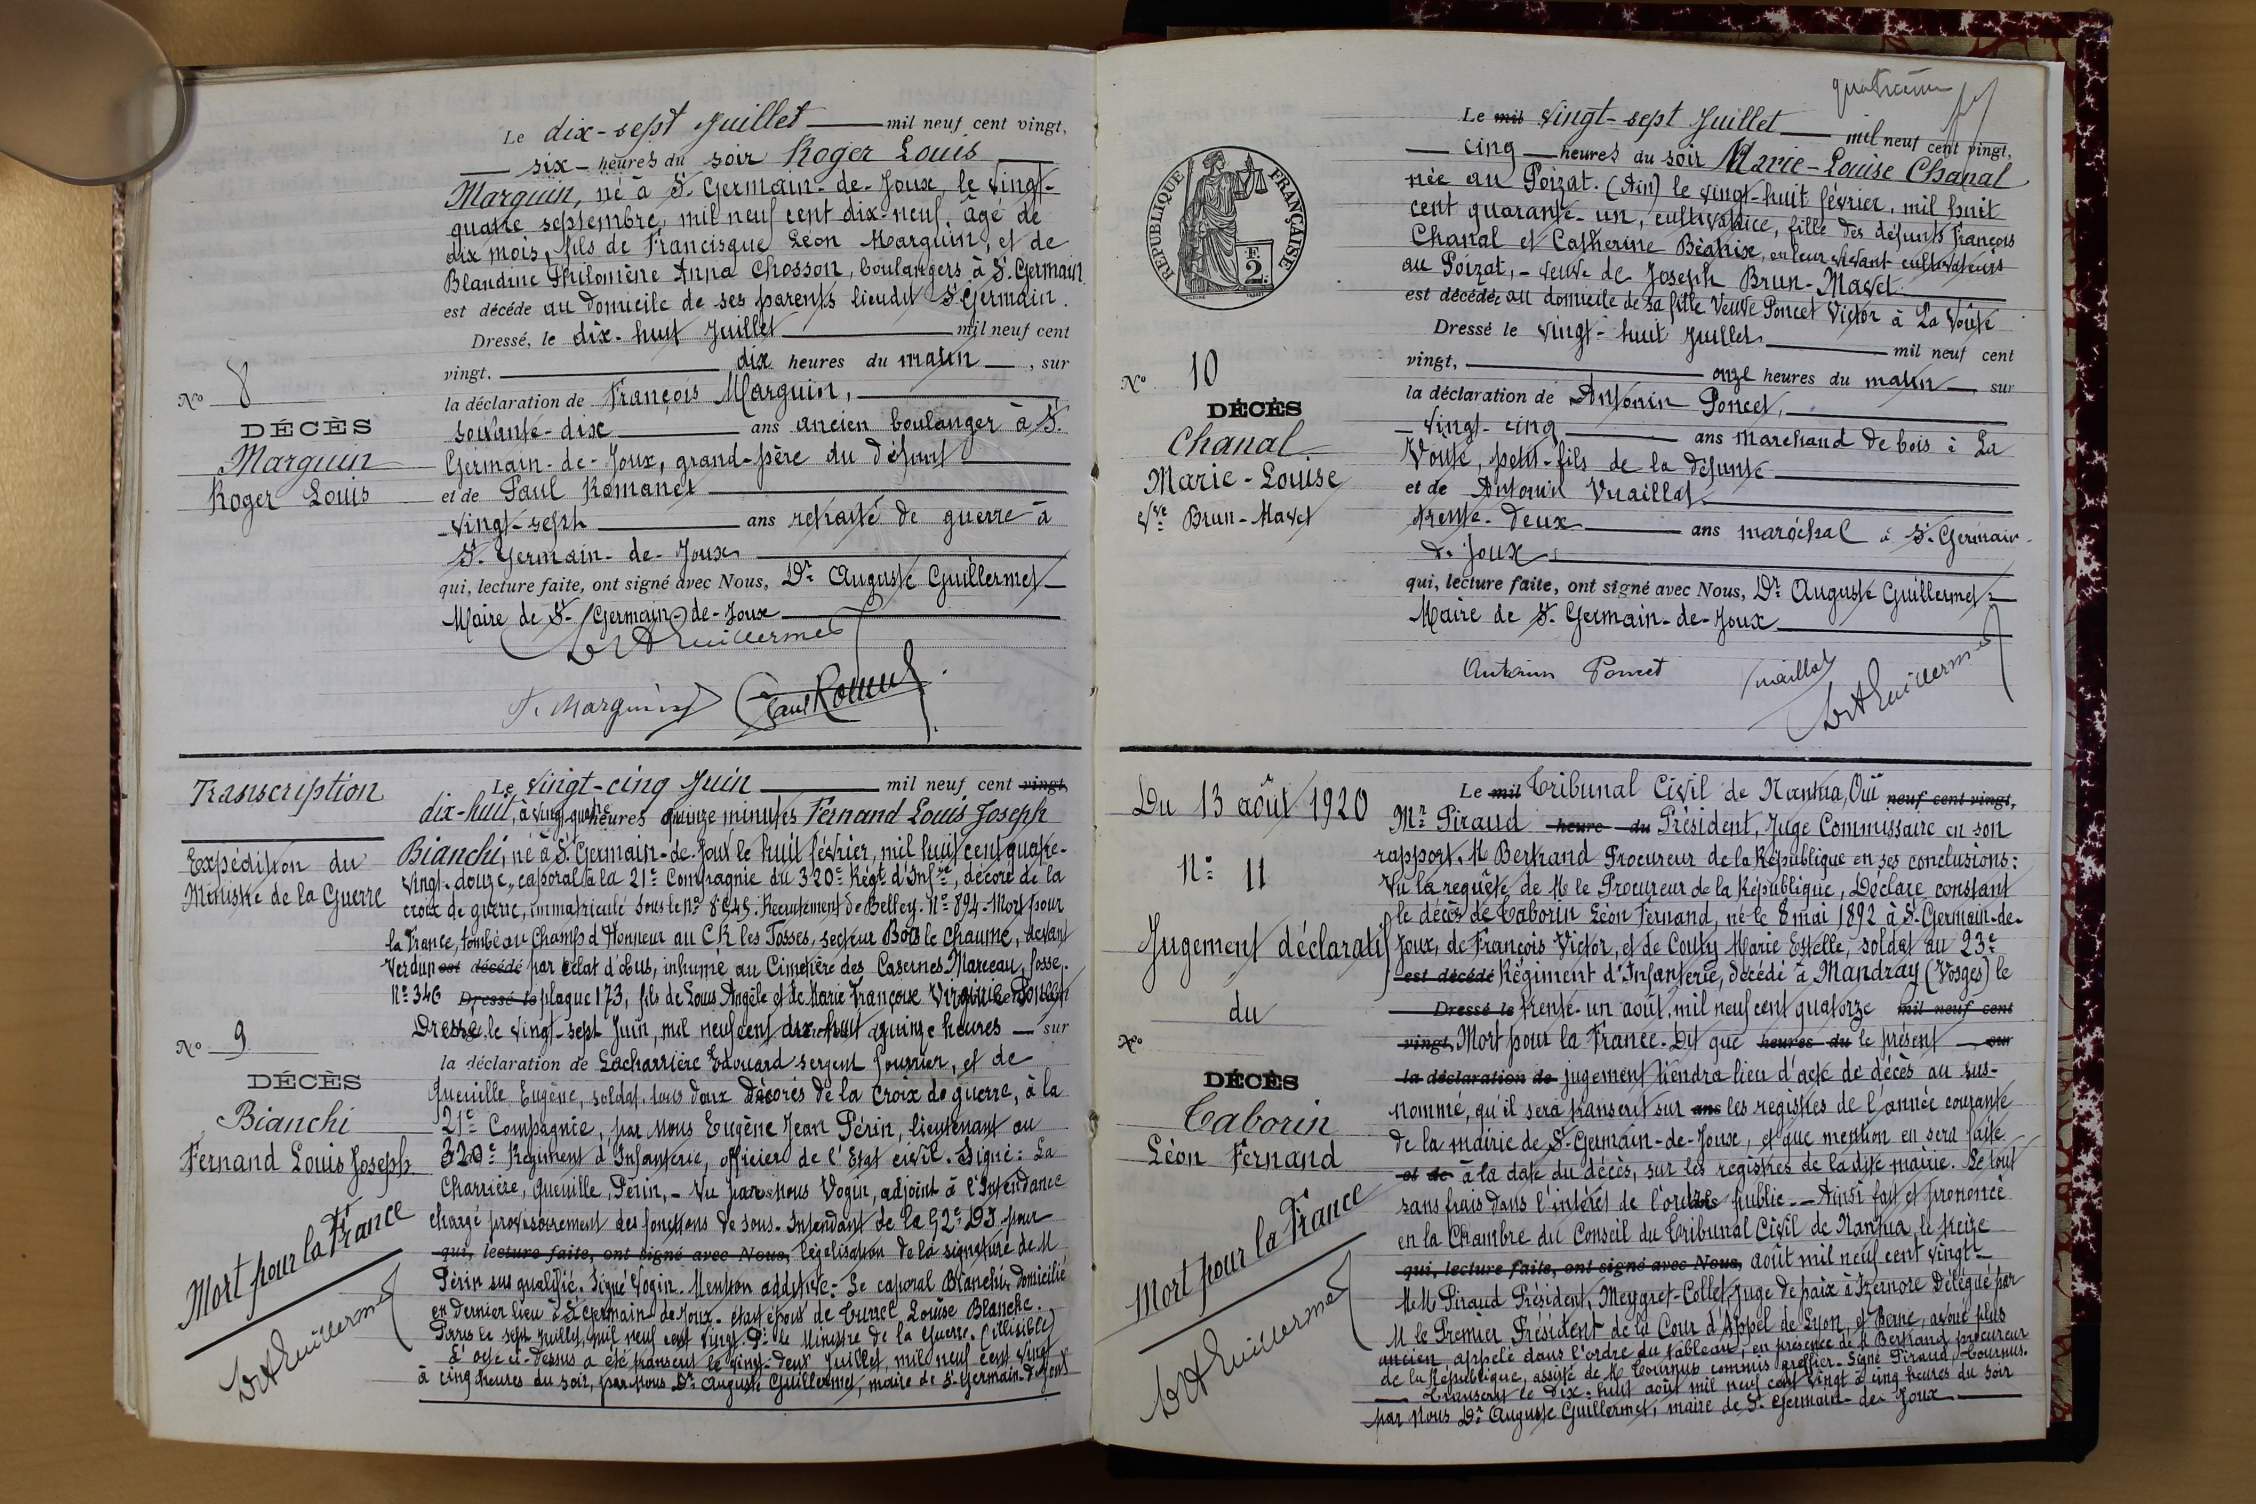 Le dix-sept Juillet mil neuf cent vingt,
six heures du soir Roger Louis
Marguin, né à St. Germain-de-Joux, le vingt-
quatre septembre, mil neuf cent dix-neuf, âgé de
dix mois, fils de Francisque Léon Marguin, et de
Blandine Philomène Anna Chosson, boulangers à St. Germain
est décédé au domicile de ses parents lieudit St Germain.
Dressé, le dix-huit Juillet mil neuf cent
vingt, dix heures du matin, sur
la déclaration de François Marguin,
soixante-dix ans ancien boulanger à St.
Germain-de-Joux, grand-père du défunt
et de Paul Romanet
vingt-sept ans retraité de guerre à
St. Germain-de-Joux
qui, lecture faite, ont signé avec Nous, Dr Auguste Guillermet
Maire de St. Germain-de-Joux
Dr A Guillermet
F. Marguin Paul Roman
No 8
DÉCÈS
Marguin
Roger Louis
Transcription
Expédition du
Ministre de la Guerre
No 9
DÉCÈS
Bianchi
Fernand Louis Joseph
Mort pour la France
Dr A Guillermet
Le vingt-cinq Juin mil neuf cent vingt,
dix-huit, à vingt-quatre heures quinze minutes Fernand Louis Joseph
Bianchi, né à St. Germain-de-Joux le huit février, mil huit cent quatre-
vingt-douze, caporal à la 21e Compagnie du 320e Régt d'Infrie, décoré de la
croix de guerre, immatriculé sous le No 8545. Recrutement de Belley. No 894. Mort pour
la France, tombé au Champ d'Honneur au C.R. les Fosses, secteur Bois le Chaume, devant
Verdun est décédé par éclat d'obus, inhumé au Cimetière des Casernes Marceau, fosse
No 346 Dressé le plaque 173, fils de Louis Angèle et de Marie Françoise Virginie
Dressé le vingt-sept Juin, mil neuf cent dix-huit à quinze heures sur
la déclaration de Lacharrière Edouard sergent fourrier, et de
Queuille Eugène, soldat, tous deux décorés de la croix de guerre, à la
21e Compagnie, par Nous Eugène Jean Périn, lieutenant au
320e Régiment d'Infanterie, officier de l'Etat civil. Signé: La
Charrière, Queuille, Périn, - Vu par nous Vogin, adjoint à l'Intendance
chargé provisoirement des fonctions de sous-Intendant de la 52e DI pour
qui, lecture faite, ont signé avec Nous, légalisation de la signature de M
Périn sus qualifié. Signé Vogin. Mention additive: Le caporal Bianchi, domicilié
en dernier lieu à St Germain-de-Joux. était époux de Curret Louise Blanche.
Paris le sept Juillet, mil neuf cent vingt. Pr. le Ministre de la Guerre. (illisible)
L'acte ci-dessus a été transcrit le vingt-deux Juillet, mil neuf cent vingt
à cinq heures du soir, par Nous Dr Auguste Guillermet, maire de St. Germain-de-Joux
quatrième
REPUBLIQUE FRANÇAISE
2
Le mil vingt-sept Juillet mil neuf cent vingt,
cinq heures du soir Marie-Louise Chanal
née au Poizat. (Ain) le vingt-huit février, mil huit
cent quarante-un, cultivatrice, fille des défunts François
Chanal et Catherine Béatrix, en leur vivant cultivateurs
au Poizat, - veuve de Joseph Brun-Mavet
est décédée au domicile de sa fille Veuve Poncet Victor à La Voûte
Dressé le vingt-huit Juillet mil neuf cent
vingt, onze heures du matin sur
la déclaration de Antonin Poncet,
vingt-cinq ans marchand de bois à La
Voûte, petit-fils de la défunte
et de Antonin Vuaillat
trente-deux ans maréchal à St. Germain-
de-Joux,
qui, lecture faite, ont signé avec Nous, Dr Auguste Guillermet
Maire de St. Germain-de-Joux
Antonin Poncet Vuaillat
Dr A Guillermet
No 10
DÉCÈS
Chanal
Marie-Louise
Vve Brun-Mavet
Du 13 août 1920
No 11
Jugement déclaratif
du
No
DÉCÈS
Taborin
Léon Fernand
Mort pour la France
Dr A Guillermet
Le mil Tribunal Civil de Nantua, Ouï neuf cent vingt,
Mr Piraud heure du Président, Juge Commissaire en son
rapport. M Bertrand Procureur de la République en ses conclusions:
Vu la requête de M le Procureur de la République, Déclare constant
le décès de Taborin Léon Fernand, né le 8 mai 1892 à St-Germain-de-
Joux, de François Victor, et de Couty Marie Estelle, soldat au 23e
est décédé Régiment d'Infanterie, décédé à Mandray (Vosges) le
Dressé le trente-un août, mil neuf cent quatorze mil neuf cent
vingt, Mort pour la France. Dit que heures du le présent sur
la déclaration de jugement tiendra lieu d'acte de décès au sus-
nommé, qu'il sera transcrit sur ans les registres de l'année courante
de la mairie de St-Germain-de-Joux, et que mention en sera faite
et de à la date du décès, sur les registres de ladite mairie. Le tout
sans frais dans l'intérêt de l'ordre public. - Ainsi fait et prononcé
en la Chambre du Conseil du Tribunal Civil de Nantua, le treize
qui, lecture faite, ont signé avec Nous, août mil neuf cent vingt
M.M Piraud Président, Meygret-Collet, Juge de paix à Izernore Délégué par
M le Premier Président de la Cour d'Appel de Lyon, et Berne, avoué plus
ancien appelé dans l'ordre du tableau, en présence de M Bertrand procureur
de la République, assisté de M Tournus commis greffier. Signé Piraud, Tournus.
Transcrit le dix-huit août mil neuf cent vingt à cinq heures du soir
par Nous Dr Auguste Guillermet, maire de St. Germain-de-Joux